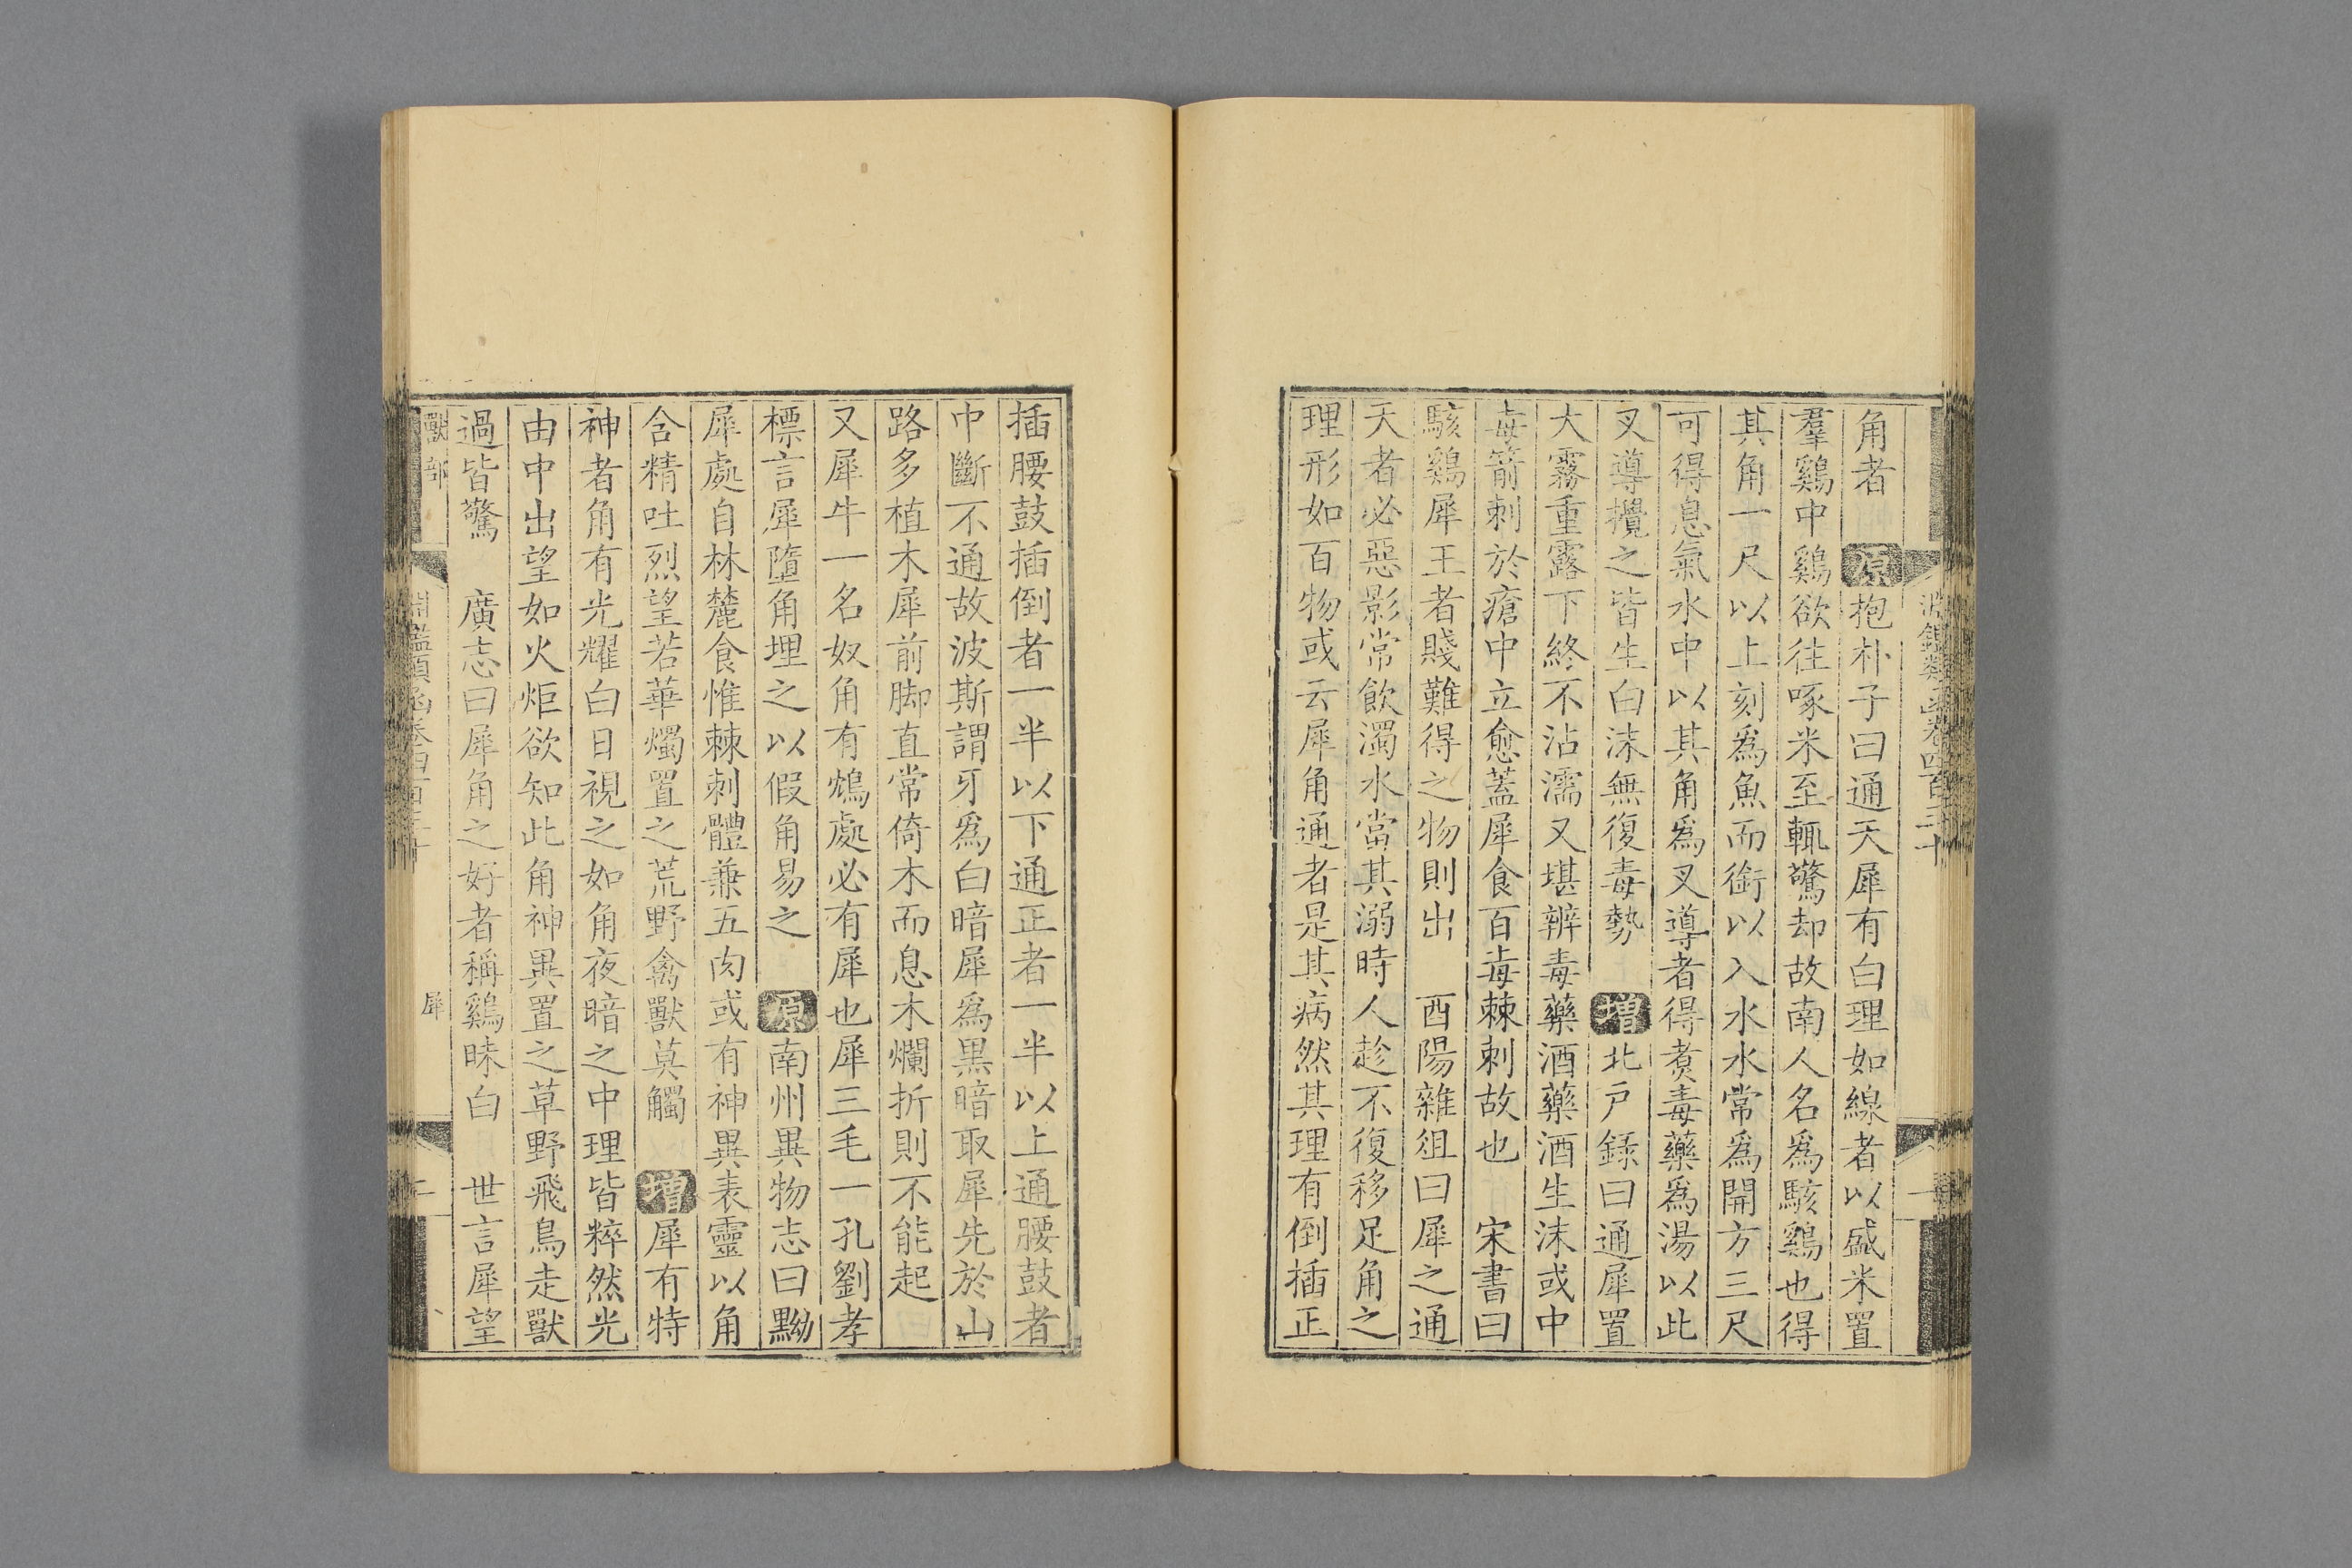 淵鑑類函卷四百三十
角者　原抱朴子曰通天犀有白理如線者以盛米置
羣鷄中鷄欲往啄米至輒驚却故南人名爲駭鷄也得
其角一尺以上刻爲魚而銜以入水水常爲開方三尺
可得息氣水中以其角爲叉導者得煑毒藥爲湯以此
叉導攪之皆生白沫無復毒勢　增北戸錄曰通犀置
大霧重露下終不沾濡又堪辨毒藥酒藥酒生沫或中
毒箭刺於瘡中立愈蓋犀食百毒棘刺故也　宋書曰
駭鷄犀王者賤難得之物則出　酉陽雜俎曰犀之通
天者必惡影常飲濁水當其溺時人趁不復移足角之
理形如百物或云犀角通者是其病然其理有倒插正
插腰鼓插倒者一半以下通正者一半以上通腰鼓者
中斷不通故波斯謂牙爲白暗犀爲黒暗取犀先於山
路多植木犀前脚直常倚木而息木爛折則不能起
又犀牛一名奴角有鴆處必有犀也犀三毛一孔劉孝
標言犀墮角埋之以假角易之　原南州異物志曰黝
犀處自林麓食惟棘刺體兼五肉或有神異表靈以角
含精吐烈望若華燭置之荒野禽獸莫觸　增犀有特
神者角有光耀白日視之如角夜暗之中理皆粹然光
由中出望如火炬欲知此角神異置之草野飛鳥走獸
過皆驚　廣志曰犀角之好者稱鷄眛白　世言犀望
獸部　淵鑑類函卷四百三十　犀　二